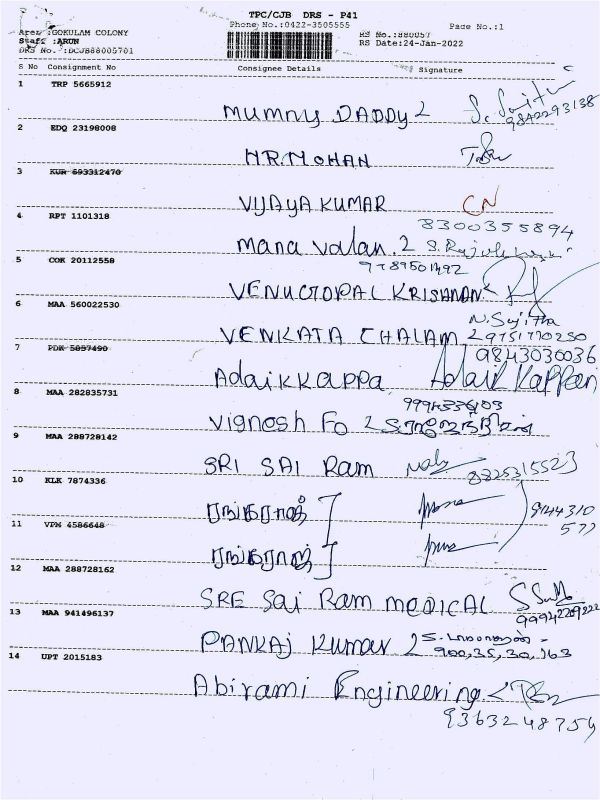 TPC/CJB DRS - P41
Phone No.:0422-3505555
Page No.:1
Area :GOKULAM COLONY
Staff :ARUN
DRS No. :DCJB88005701
RS No.:880057
RS Date:24-Jan-2022
S No Consignment No Consignee Details Signature
1 TRP 5665912
MUMMY DADDY
9842293138
2 EDQ 23198008
MR.MOHAN
3 KUR 693312470
VIJAYA KUMAR CN
8300355894
4 RPT 1101318
Mana valan. 2
5 COK 20112558
VENUGOPAL KRISHNAN
6 MAA 560022530
N. Sujitha
VENKATA CHALAM 2 9751770250
7 PDK 5097490
9843030036
Adaikkappa Adaikkappan
8 MAA 282835731
Vignesh Fo
9 MAA 288728142
SRI SAI Ram
8825315523
10 KLK 7874336
ரங்கராஜ்
9144310
577
11 VPM 4586648
ரங்கராஜ்
12 MAA 288728162
SRE Sai Ram MEDICAL
9994229222
13 MAA 941496137
PANKAJ KUMAR
900,35,30,163
14 UPT 2015183
Abirami Engineering
9363248754